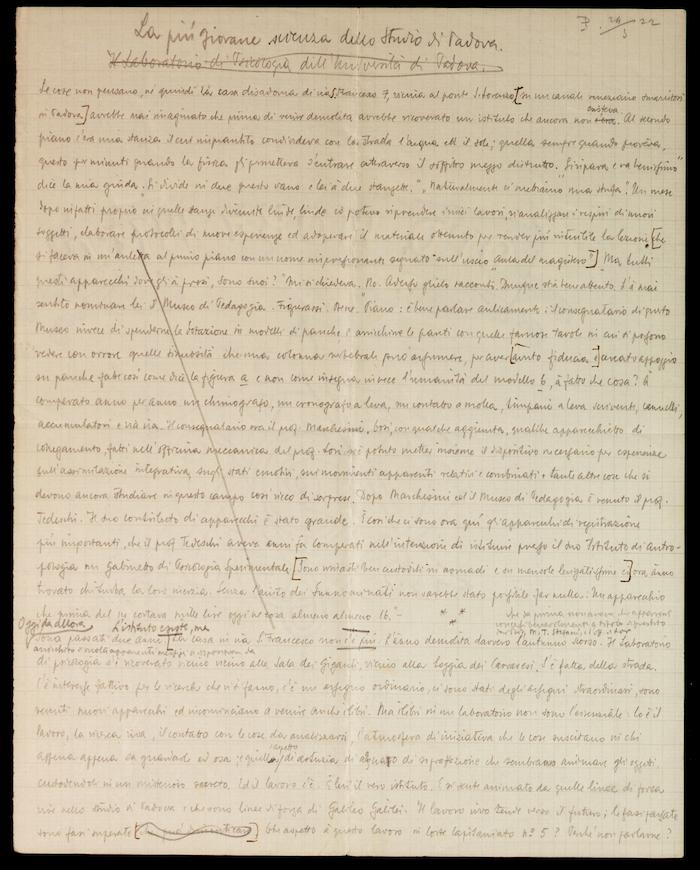 La più giovane scienza dello Studio di Padova.
Il Laboratorio di Psicologia dell'Università di Padova.
Le cose non pensano, né quindi la casa disadorna di via S. Francesco 7, vicina al ponte S. Lorenzo [in un canale veneziano smarritosi
in Padova] avrebbe mai imaginato che prima di venire demolita avrebbe ricoverato un istituto che ancora non esisteva. Al secondo
piano c'era una stanza il cui impiantito condivideva con la strada l'acqua ed il sole; quella sempre quando pioveva,
questo per minuti quando la finestra gli permetteva d'entrare attraverso il soffitto mezzo distrutto. "Si ripara e va benissimo"
dice la mia guida. Si divide in due questo vano e lei à due stanzette." "Naturalmente ci metteremo una stufa". Un mese
dopo infatti proprio in quelle stanze divenute linde, linde io potevo riprendere i miei lavori, analizzare i respiri di nuovi
soggetti, elaborare protocolli di nuove esperienze ed adoperare il materiale ottenuto per render più intuitibile la lezione [che
si faceva in un'auletta al primo piano con un nome impressionante segnato sull'uscio "Aula del magistero".] "Ma tutti
questi apparecchi dove gli à presi, sono suoi?" mi si chiedeva. "No. Adesso glielo racconto. Dunque stia bene attento. S'è mai
sentito nominare lei il Museo di Pedagogia. Figurarsi. Bene. Piano: è bene parlare anticamente: il consegnatario di questo
Museo invece di spenderne la dotazione in modelli di panche e arricchirne le pareti con quelle famose tavole in cui si possono
vedere con orrore quelle sinuosità che una colonna vertebrale può assumere, per aver [avuto fiducia e] cercato appoggio
su panche fatte così come dice la figura a e non come insegna invece l'umanità del modello b, à fatto che cosa? À
comperato anno per anno un chimografo, un cronografo a leva, un contatto a molla, timpani a leva scrivente, cannelli,
accumulatori e via via. Il consegnatario era il prof. Marchesini. Così, con qualche aggiunta, qualche apparecchietto di
collegamento, fatti nell'officina meccanica del prof. Lori si è potuto metter insieme il dispositivo necessario per esperienze
sull'assimilazione integrativa, sugli stati emotivi, sui movimenti apparenti relativi e combinati e tante altre cose che si
devono ancora studiare in questo campo così ricco di sorprese. Dopo Marchesini ed il Museo di Pedagogia è venuto il prof.
Tedeschi. Il suo contributo di apparecchi è stato grande. È così che ci sono ora qui gli apparecchi di registrazione
più importanti, che il prof. Tedeschi aveva anni fa comperati nell'intenzione di istituire presso il suo Istituto di Antro-
pologia un Gabinetto di Psicologia Sperimentale [Sono invidia ben custoditi in armadi e su mensole levigatissime e] ora ànno
trovato chi turba la loro inerzia. Senza l'aiuto dei sunnominati non sarebbe stato possibile far nulla. Un apparecchio
che prima del 14 costava mille lire oggi ne costa almeno almeno 16.-
* * *
Oggi da allora L'istituto esiste, ma
sono passati due anni la casa in via S. Francesco non c'è più. L'ànno demolita davvero l'autunno scorso. Il Laboratorio
di psicologia s'è ricoverato vicino vicino alla Sala dei Giganti, vicino alla Loggia dei Carraresi. S'è fatta, della strada.
C'è interesse fattivo per le ricerche che vi si fanno, c'è un assegno ordinario, ci sono stati degli assegni straordinari, sono
venuti nuovi apparecchi ed incominciano a venire anche i libri. Ma i libri in un laboratorio non sono l'essenziale: lo è il
lavoro, la ricerca viva, il contatto con le cose da analizzarsi, l'atmosfera di iniziativa che le cose suscitano in chi
appena appena sa guardarle ed osa; quell'aspetto di astuzia di agguato di sopraffazione che sembrano animare gli oggetti
custodendoli in un misterioso secreto. Ed il lavoro c'è. È lui il vero istituto. E si sente animato da quelle linee di forza
vive nello studio di Padova e che sono linee di forza di Galileo Galilei. Il lavoro vivo tende verso il futuro; le fasi passate
sono fasi superate Che aspetto à questo lavoro in Corte Capitaniato n° 5? Perché non parlarne?